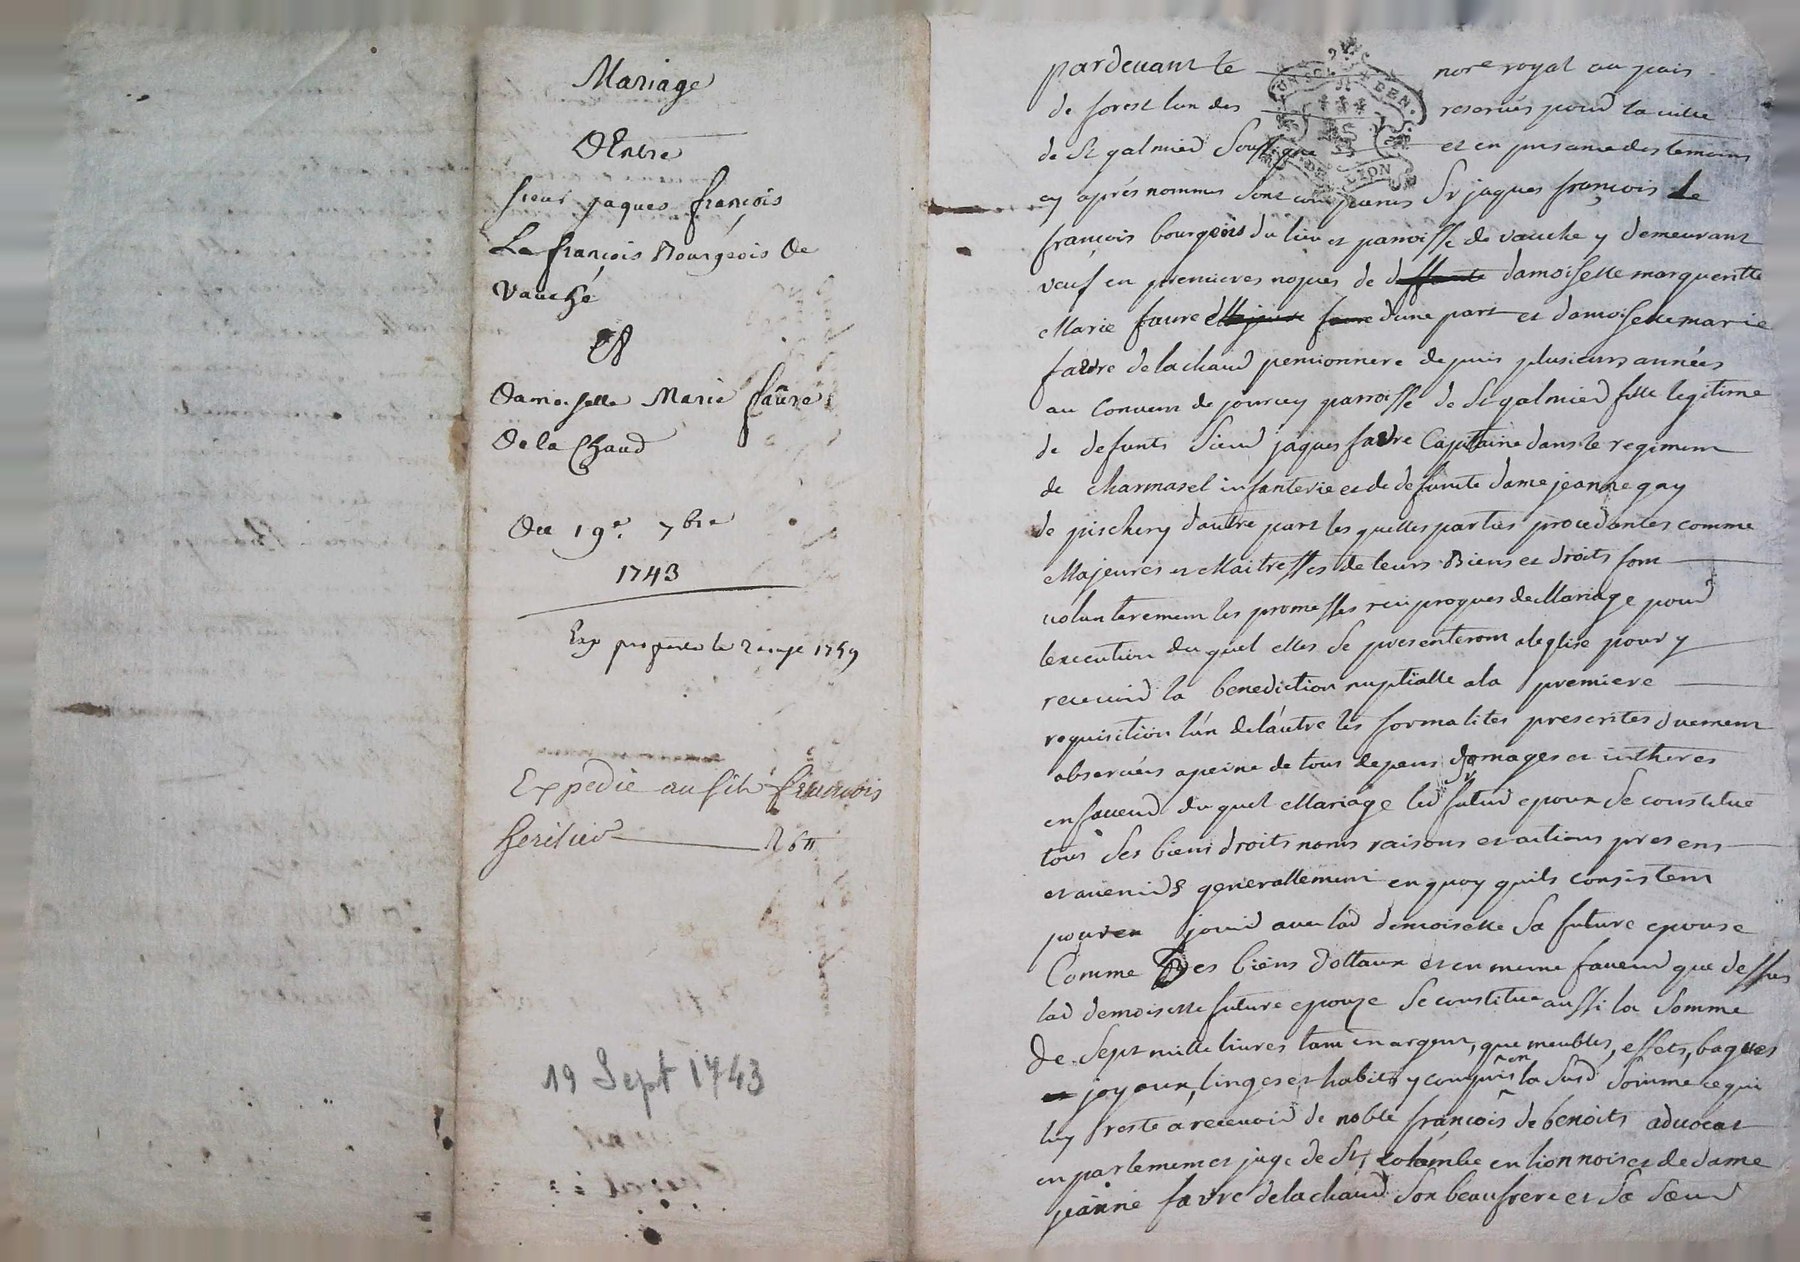 Mariage
D'Entre
sieur jaques françois
Le françois Bourgeois de
Vauché
Et
Damoiselle Marie faûre
De la Chaud
Du 19e. 7bre
1743
Exp le 2 1749
Expedié au françois
heritier
19 Sept 1743
pardevant le nore royal au pais
de forest lun des reservés pour la ville
de St galmier soussigné et en presance des temoins
cy aprés nommes sont comparus Sr jaques françois Le
françois bourgeois du lieu et parroisse de vauche y demeurant
veuf en premieres nopces de damoiselle margueritte
Marie faure d'une part et damoiselle marie
favre de lachaud pensionnere depuis plusieurs années
au Convent de jourcey parroisse de St galmier fille legitime
de defunts Sieur jaques favre Capitaine dans le regiment
de Charmasel infanterie et de defunte dame jeanne gay
de pischery d'autre part les quelles parties procedantes comme
Majeures et Maitresses de leurs Biens et droits font
volunterement les promesses reciproques de Mariage pour
lexecution du quel elles se presenteront a leglise pour y
recevoir la benediction nuptialle a la premiere
requisition lún delaútre les formalites prescrites duement
observées a peine de tous depens domages et intheres
en faveur du quel Mariage led futur epoux se constitue
tous ses biens droits noms raisons et actions presens
et avenirs generallement en quoy quils consistent
pour en jouir avec lad demoiselle sa future epouse
Comme Des biens dottaux et en meme faveur que dessus
lad demoiselle future epouze se constitue aussi la somme
de sept mille livres tant en argent, que meubles, effets, bagues
joyaux, linges et habits y compris en la susd somme ce qui
luy reste a recevoir de noble françois de benoits advocat
en parlement et juge de Ste colombe en lionnois et de dame
jeanne favre delachaud son beaufrere et sa sœur